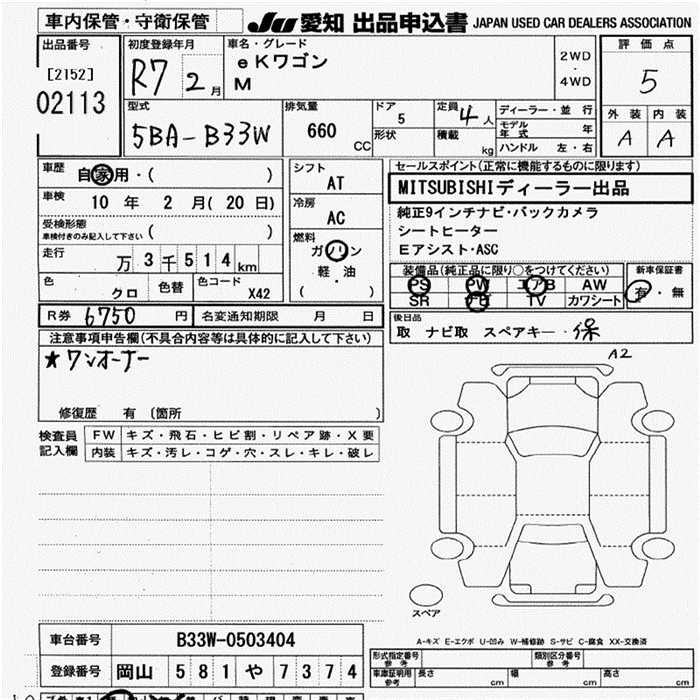 車内保管・守衛保管
JU 愛知 出品申込書 JAPAN USED CAR DEALERS ASSOCIATION
出品番号
[2152]
02113
初度登録年月
R7 2月
車名・グレード
eKワゴン
M
2WD
・
4WD
評価点
5
外装 内装
A A
型式
5BA-B33W
排気量
660
CC
ドア
5
形状
定員 4人
積載 kg
ディーラー・並行
モデル年式 年
ハンドル 左・右
車歴
自家用・( )
車検
10年 2月(20日)
受検形態
車検付きのみ記入して下さい ( )
走行
万3千514km
色 クロ 色替 色コード X42
シフト
AT
冷房
AC
燃料
ガソリン
軽・油
( ・ )
セールスポイント(正常に機能するものに限ります)
MITSUBISHIディーラー出品
純正9インチナビ・バックカメラ
シートヒーター
Eアシスト・ASC
装備品(純正品に限り○をつけてください)
PS PW エアB AW
SR TV カワシート
新車保証書
有・無
R券 6750円 名変通知期限 月 日
後日品
取 ナビ取 スペアキー・保
注意事項申告欄(不具合内容等は具体的に記入して下さい)
★ワンオーナー
修復歴 有 〔箇所 〕
A2
検査員
記入欄
FW キズ・飛石・ヒビ割・リペア跡・X要
内装 キズ・汚レ・コゲ・穴・スレ・キレ・破レ
スペア
A-キズ E-エクボ U-凹み W-補修跡 S-サビ C-腐食 XX-交換済
車台番号 B33W-0503404
登録番号 岡山 581 や 7374
形式指定番号
参考
類別区分番号
参考
車庫証明用
参考
長さ cm 幅 cm 高さ cm